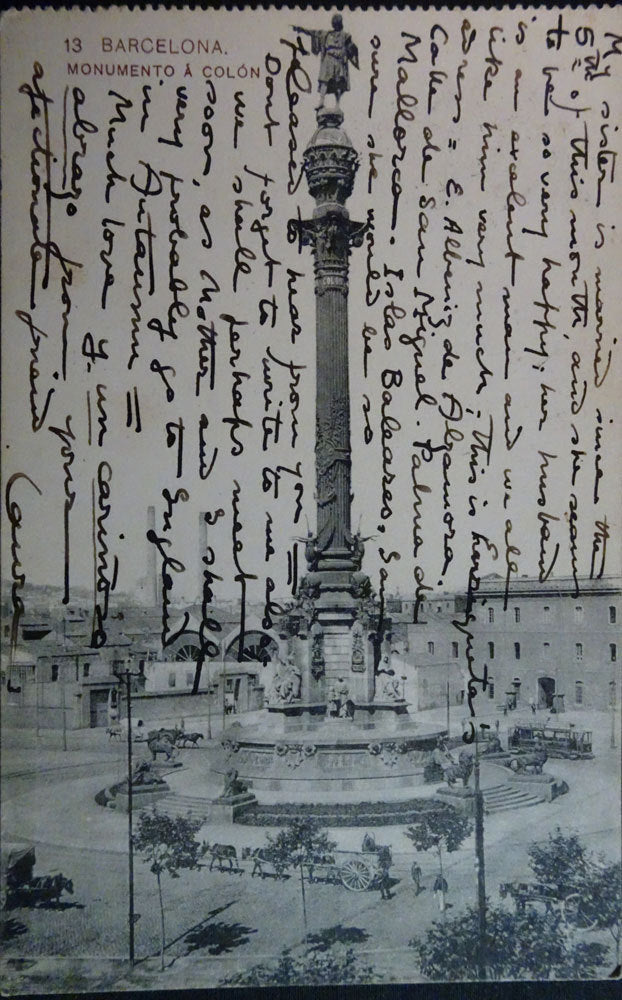 13 BARCELONA.
MONUMENTO Á COLÓN
COLON
My sister is married since the
5th of this month, and she seems
to be so very happy; her husband
is an exalent man and we all
like him very much; this is Enriqueta's
adress = E. Albeniz de
Calle de San Miguel. Palma de
Mallorca. Islas Baleares, I am
sure she would be so
pleased to hear from you =
Dont forget to write to me also
we shall perhaps meet
soon, as Mother and I shall
very probably go to England
in Autumn =
Much love y un cariñoso
abrazo from your
afectionate friend
Laura